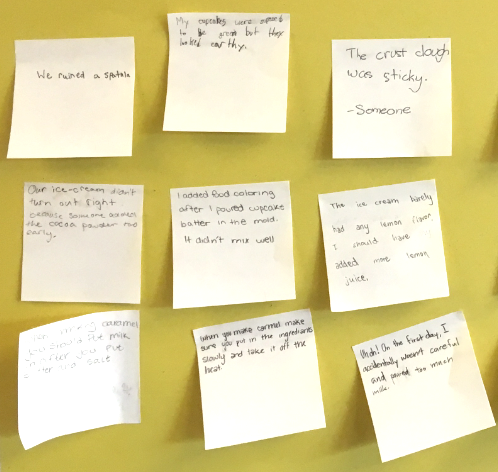 We ruined a spatula
My cupcakes were supposed
to be green but they
looked earthy.
The crust dough
was sticky.
-Someone
Our ice-cream didn't
turn out right
because someone
the cocoa powder too
early.
I added food coloring
after I poured cupcake
batter in the mold.
It didn't mix well
The ice cream barely
had any lemon flavor.
I should have
added more lemon
juice.
caramel
milk
after you put
salt
When you make carmel make
sure you put in the ingredients
slowly and take it off the
heat
On the first day, I
accidentally wasn't careful
and poured too much
milk.